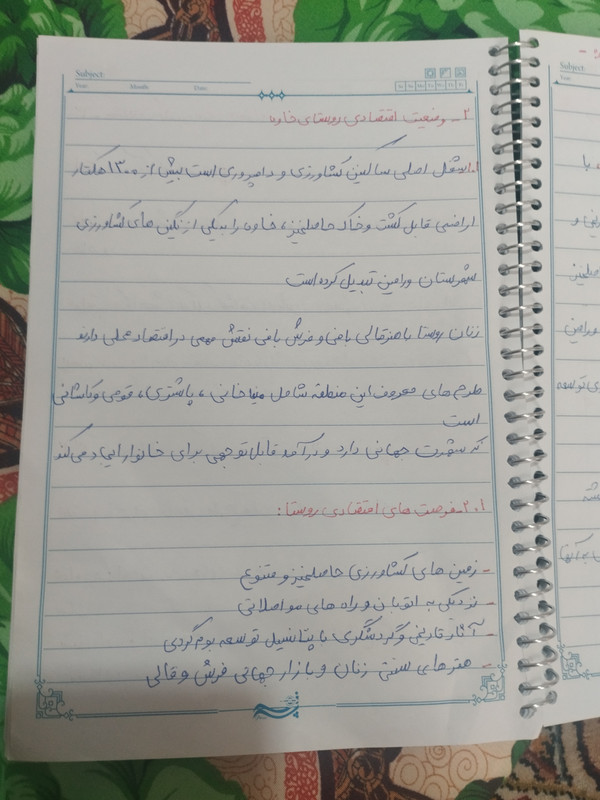 Subject:
Year: Month: Date:
Sa Su Mo Tu We Th Fr
۲ - وضعیت اقتصادی روستای خاوه
۱.۱ شغل اصلی ساکنین کشاورزی و دامپروری است بیش از ۱۳۰۰ هکتار
اراضی قابل کشت و خاک حاصلخیز، خاوه را به یکی از نگین های کشاورزی
شهرستان ورامین تبدیل کرده است
زنان روستا با هنر قالی بافی و فرش بافی نقش مهمی در اقتصاد محلی دارند
طرح های معروف این منطقه شامل مینا خانی، پاشتری، قومی و کاشانی
است
که شهرت جهانی دارد و درآمد قابل توجهی برای خانوار ایجاد می کند
۲.۱ - فرصت های اقتصادی روستا:
- زمین های کشاورزی حاصلخیز و متنوع
- نزدیکی به اتوبان و راه های مواصلاتی
- آثار تاریخی و گردشگری با پتانسیل توسعه بوم گردی
- هنرهای سنتی زنان و بازار جهانی فرش و قالی
Subject:
Year:
با
حاصلخیز
ورامین
ی توسعه